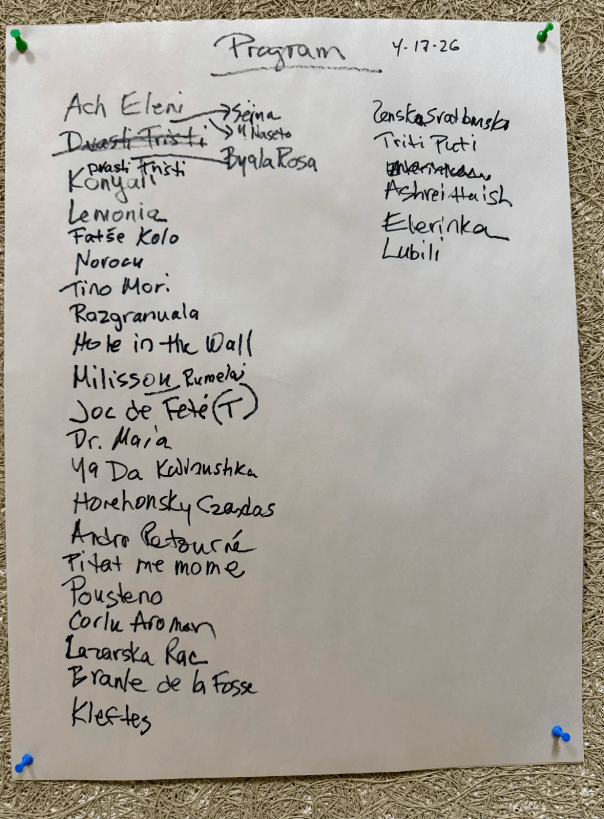 Program 4-17-26
Ach Eleni → Sejna
Drasti Tristi ↘ U Naseto
Drasti Tristi Byala Rosa
Konyali
Lemonia
Fatše Kolo
Norocu
Tino Mori
Razgranuala
Hole in the Wall
Milisson Rumelaj
Joc de Feté (T)
Dr. Maia
Ya Da Kalinushka
Horehonsky Czardas
Andro Retourné
Pitat me mome
Pousteno
Corlu Aroman
Lazarska Rac
Branle de la Fosse
Kleftes
Zenska Svatbarska
Triti Puti
Ashrei Haish
Elerinka
Lubili